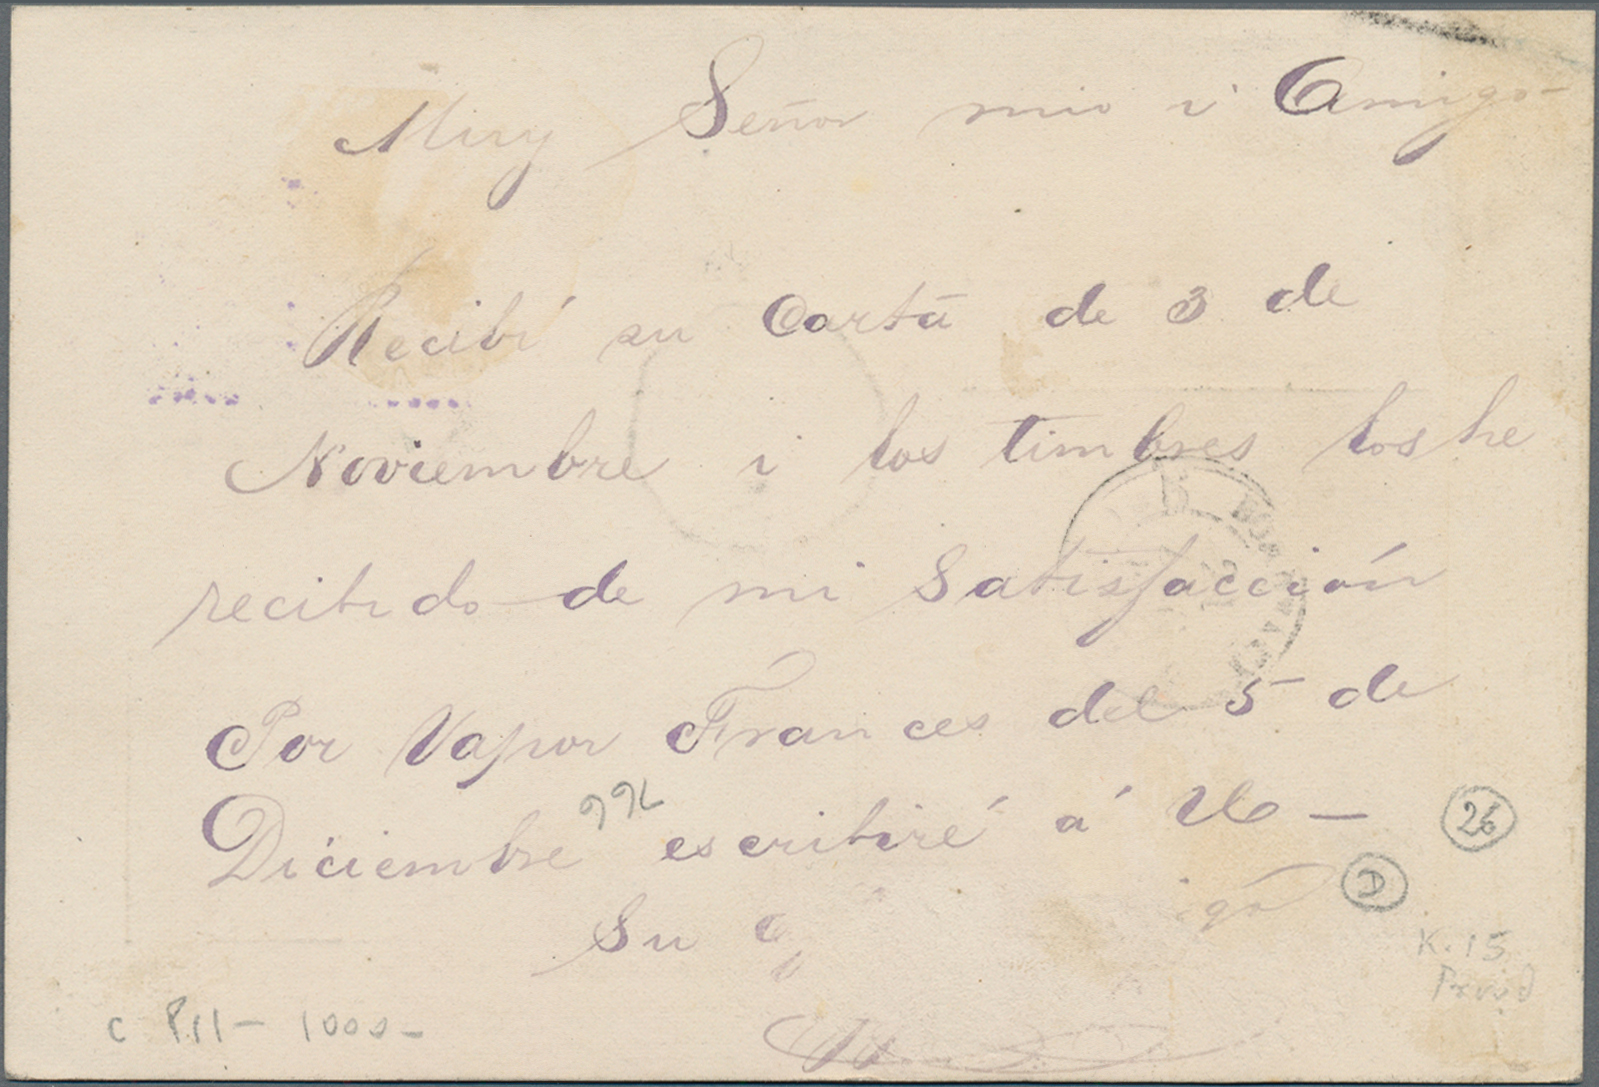 Muy Señor mio i Amigo
Recibí su Carta de 3 de
Noviembre i los timbres los he
recibido de mi Satisfacción
Por Vapor Frances del 5 de
Diciembre escribiré á
992
26
D
Su
K. 15
c P.11 - 1000 -